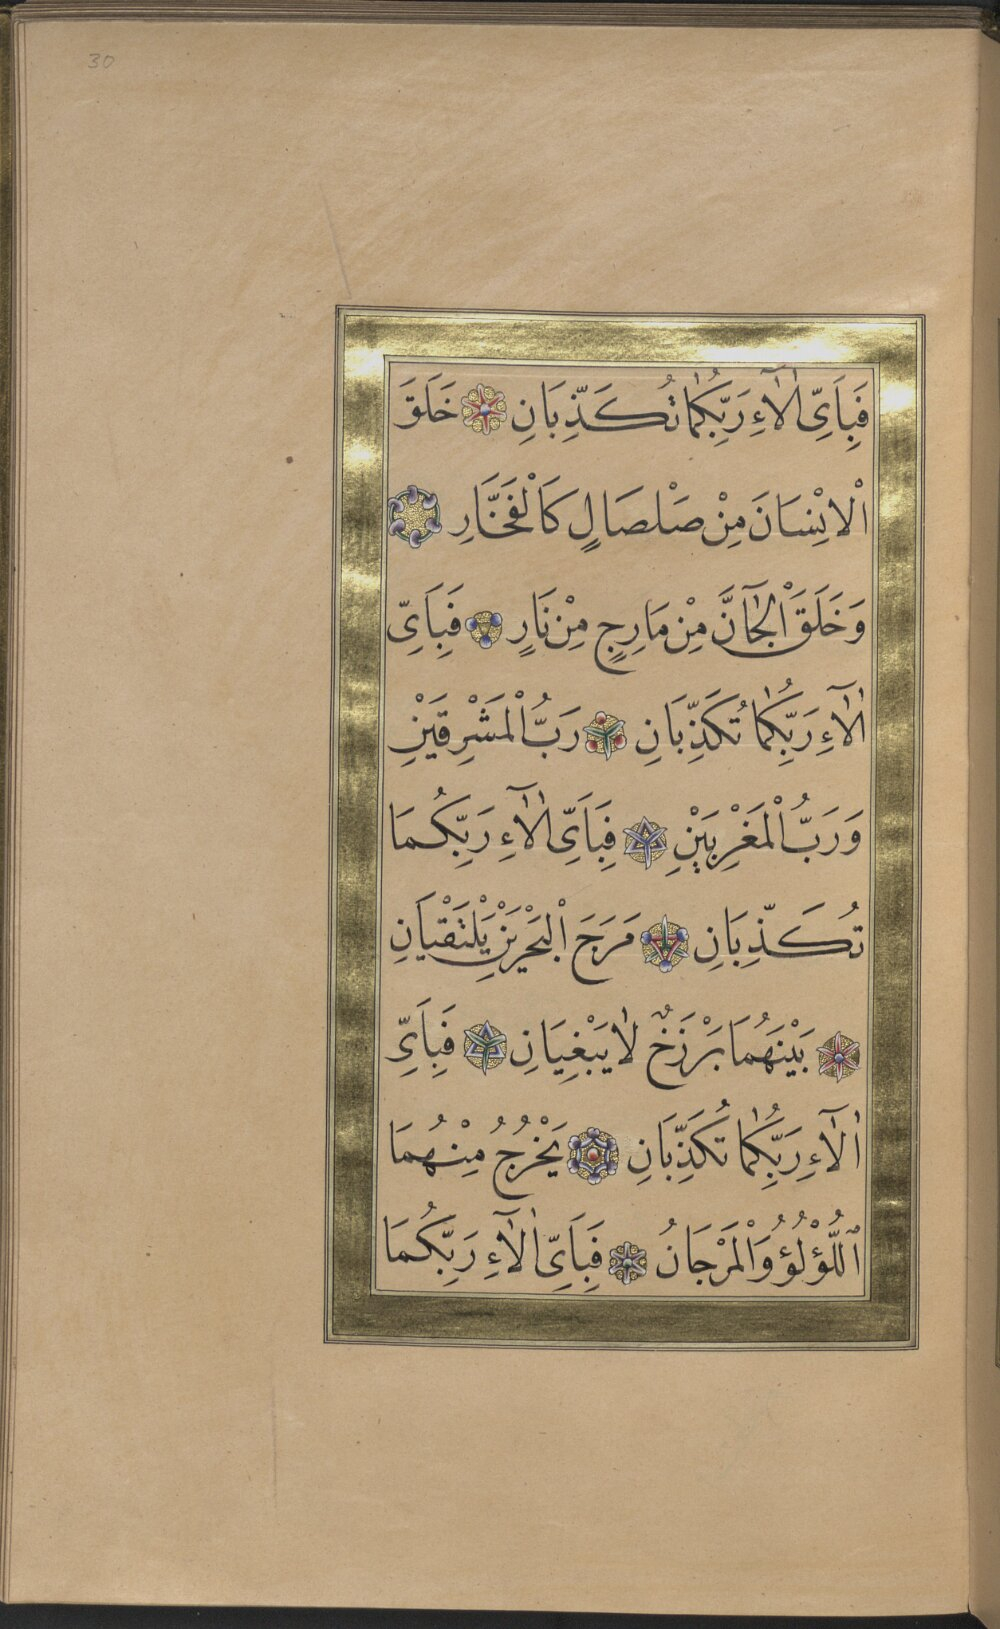 30
فَبِاَىِّ اٰلَٓاءِ رَبِّكُمَا تُكَذِّبَانِ خَلَقَ
الْاِنْسَانَ مِنْ صَلْصَالٍ كَالْفَخَّارِ
وَخَلَقَ الْجَٓانَّ مِنْ مَارِجٍ مِنْ نَارٍ فَبِاَىِّ
اٰلَٓاءِ رَبِّكُمَا تُكَذِّبَانِ رَبُّ الْمَشْرِقَيْنِ
وَرَبُّ الْمَغْرِبَيْنِ فَبِاَىِّ اٰلَٓاءِ رَبِّكُمَا
تُكَذِّبَانِ مَرَجَ الْبَحْرَيْنِ يَلْتَقِيَانِ
بَيْنَهُمَا بَرْزَخٌ لَا يَبْغِيَانِ فَبِاَىِّ
اٰلَٓاءِ رَبِّكُمَا تُكَذِّبَانِ يَخْرُجُ مِنْهُمَا
اللُّؤْلُؤُ وَالْمَرْجَانُ فَبِاَىِّ اٰلَٓاءِ رَبِّكُمَا